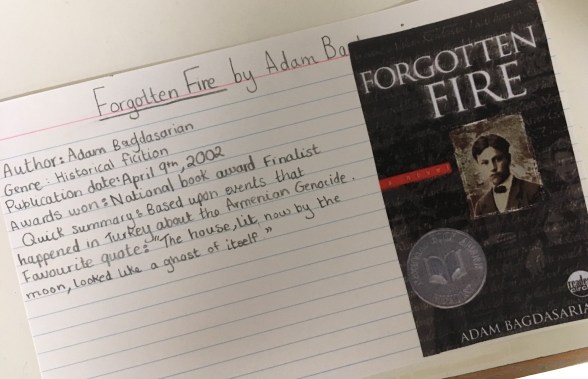 Forgotten Fire by Adam
Author: Adam Bagdasarian
Genre: Historical ficition
Publication date: April 9th, 2002
Awards won: National book award Finalist
Quick summary: Based upon events that
happened in Turkey about the Armenian Genocide.
Favourite quote: "The house, lit now by the
moon, looked like a ghost of itself."
FORGOTTEN
FIRE
ADAM BAGDASARIA